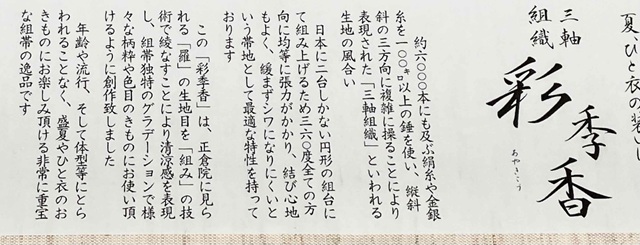 夏、ひと衣の装い
三軸
組織
彩季香
あやきこう
約六〇〇〇本にも及ぶ絹糸や金銀
糸を一〇〇㌔以上の錘を使い、縦斜
斜の三方向に複雑に操ることにより
表現された「三軸組織」といわれる
生地の風合い
日本に二台しかない円形の組台に
て組み上げるため三六〇度全ての方
向に均等に張力がかかり、結び心地
もよく、緩まずシワになりにくいと
いう帯地として最適な特性を持って
おります
この「彩季香」は、正倉院に見ら
れる「羅」の生地目を「組み」の技
術で綾なすことにより清涼感を表現
し、組帯独特のグラデーションで様
々な柄粋や色目のきものにお使い頂
けるように創作致しました
年齢や流行、そして体型等にとら
われることなく、盛夏やひと衣のお
きものにお楽しみ頂ける非常に重宝
な組帯の逸品です